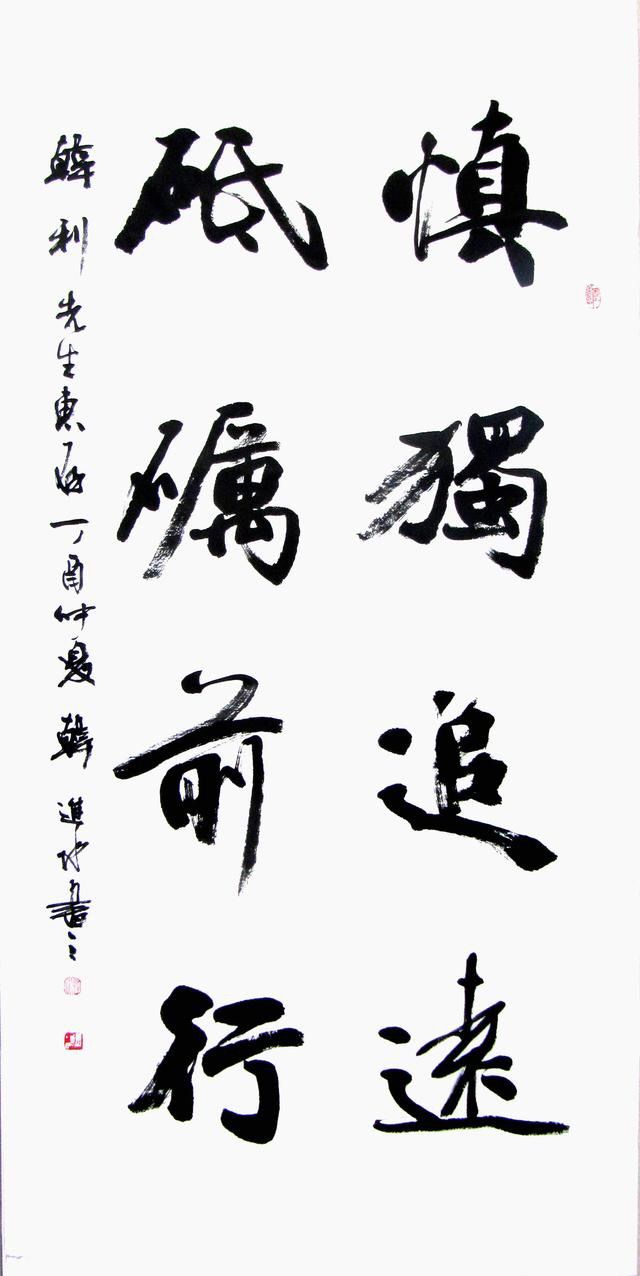 慎獨追遠
砥礪前行
韓利先生惠存丁酉仲夏韓進水書之